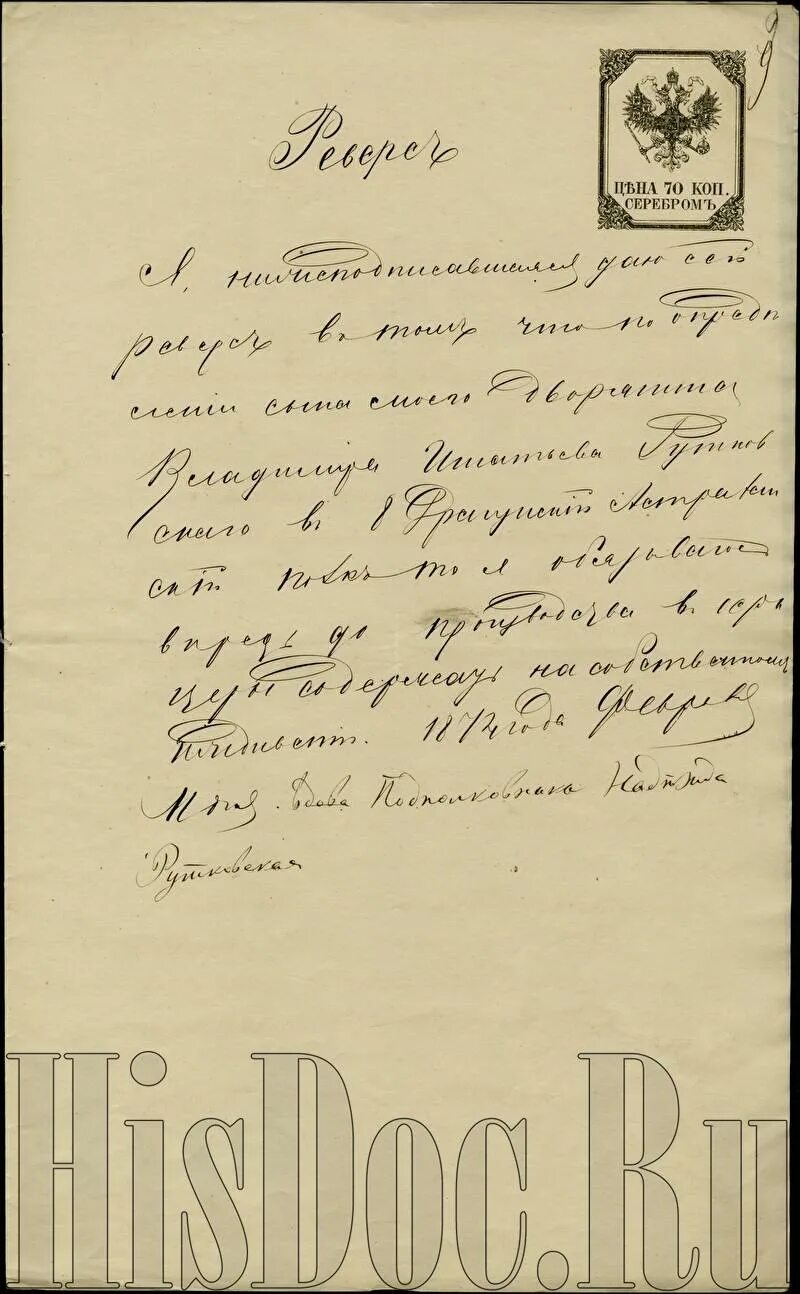 9
Реверсъ
ЦѢНА 70 КОП.
СЕРЕБРОМЪ
Я, нижеподписавшаяся даю сей
реверсъ въ томъ что по опредѣ
леніи сына моего Дворянина
Владимира Игнатьева Рутков
скаго въ 8 Драгунскій Астрахан
скій полкъ то я обязываюсь
впредь до производства въ офи
церы содержать на собственномъ
иждивеніи. 1872 года Февраля
дня. Вдова Подполковника Надѣжда
Рутковская
HisDoc.Ru